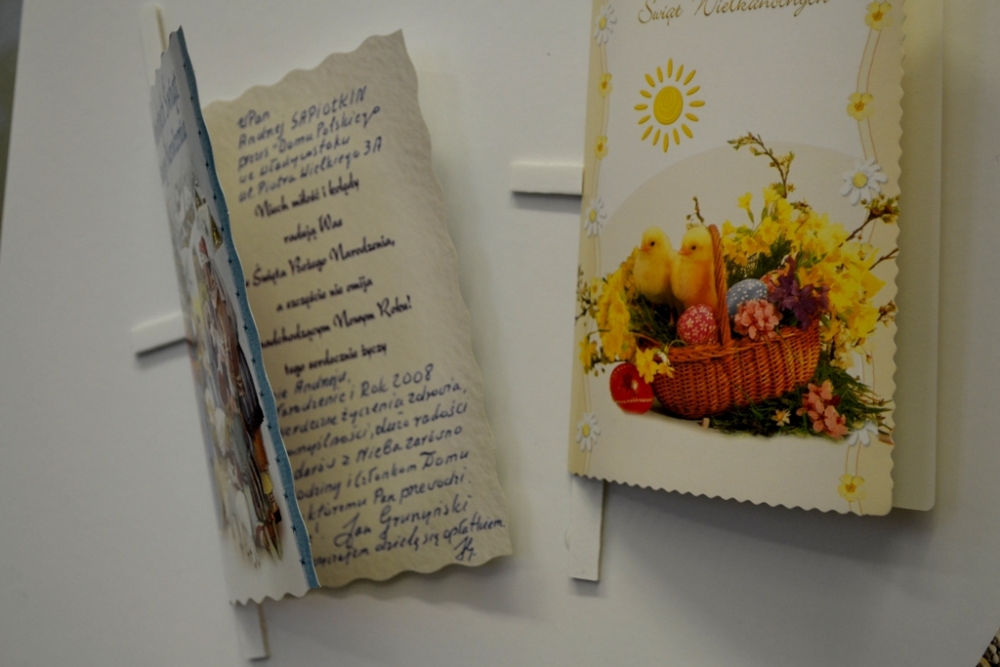 Pan
Andrzej SAPIOŁKIN
prezes "Domu Polskiego
we Władywostoku
ul. Piotra Wielkiego 3A
Niech miłość i kolędy
radują Was
Święta Bożego Narodzenia,
a szczęście nie omija
nadchodzącym Nowym Roku!
tego serdecznie życzy
Andrzeju,
Narodzenie i Rok 2008
serdeczne życzenia zdrowia,
pomyślności, dużo radości
darów z Nieba zarówno
rodziny i członkom Domu
któremu Pan przewodzi
Jan
dzielę się opłatkiem
Świąt Wielkanocnych